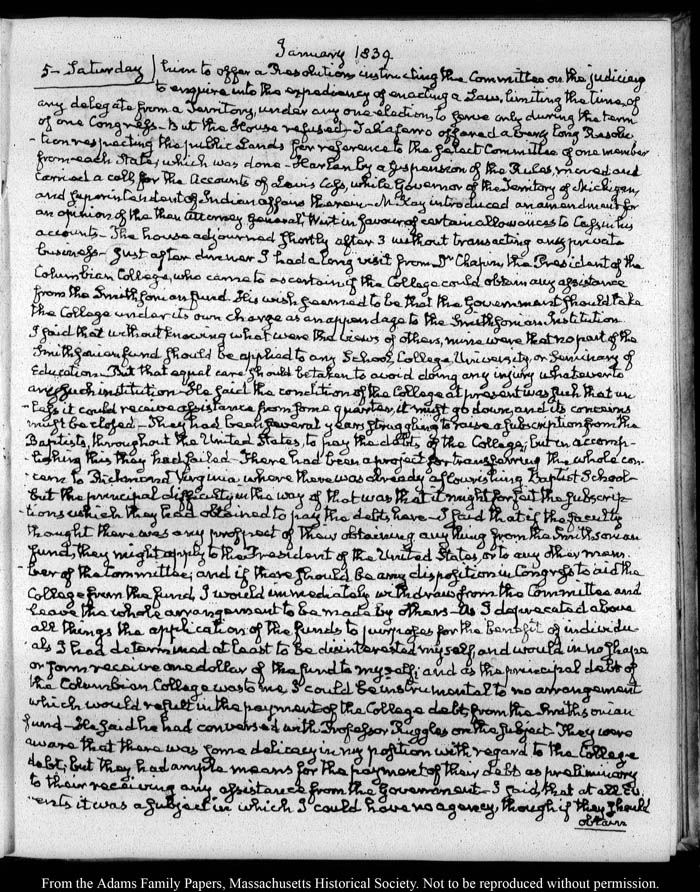 January 1839
5- Saturday | him to offer a Resolution instructing the Committee on the judiciary
to enquire into the expediency of enacting a Law, limiting the time, of
any delegate from a Territory, under any one election, to serve only during the term
of one Congress- But the House refused- Taliaferro offered a very long Resolu
-tion respecting the public Lands for reference to the select Committee of one member
from each State, which was done- Harlan by a suspension of the Rules, moved and
carried a call for the Accounts of Lewis Cass, while Governor of the Territory of Michigan,
and Superintendent of Indian affairs therein- McKay introduced an amendment for
an opinion of the then Attorney General, Wirt in favour of certain allowances to Cass in his
accounts- The house adjourned shortly after 3 without transacting any private
business- Just after dinner I had a long visit from Dr Chapin the President of the
Columbian College, who came to ascertain if the College could obtain any assistance
from the Smithsonian fund. His wish seemed to be that the Government should take
the College under its own charge as an appendage to the Smithsonian Institution
I said that without knowing what were the views of others, mine were that no part of the
Smithsonian fund should be applied to any School, College, University, or Seminary of
Education- But that equal care should be taken to avoid doing any injury whatever to
any such institution- He said the condition of the College at present was such that un
-less it could receive assistance from some quarter, it must go down, and its concerns
must be closed- They had been several years struggling to raise a subscription from the
Baptists, throughout the United States, to pay the debts of the College; but in accomp-
-lishing this they had failed- There had been a project for transferring the whole con-
-cern to Richmond Virginia where there was already a flourishing Baptist School-
but the principal difficulty in the way of that was that it might forfeit the subscrip-
-tions which they had obtained to pay the debts here- I said that if the faculty
thought there was any prospect of their obtaining any thing from the Smithsonian
fund, they might apply to the President of the United States, or to any other mem-
-ber of the Committee; and if there should be any disposition in Congress to aid the
College from the fund, I would immediately withdraw from the Committee and
leave the whole arrangement to be made by others- As I deprecated above
all things the application of the funds to purposes for the benefit of individu-
-als I had determined at least to be disinterested myself, and would in no shape
or form receive one dollar of the fund to myself; and as the principal debt of
the Columbian College was to me I could be instrumental to no arrangement
which would result in the payment of the College debt, from the Smithsonian
fund- He said he had convers'd with Professor Ruggles on the subject- They were
aware that there was some delicacy in my position with regard to the College
debt; but they had ample means for the payment of their debt as preliminary
to their receiving any assistance from the Government- I said that at all ev-
-ents it was a subject in which I could have no agency, though if they should
obtain
From the Adams Family Papers, Massachusetts Historical Society. Not to be reproduced without permission.